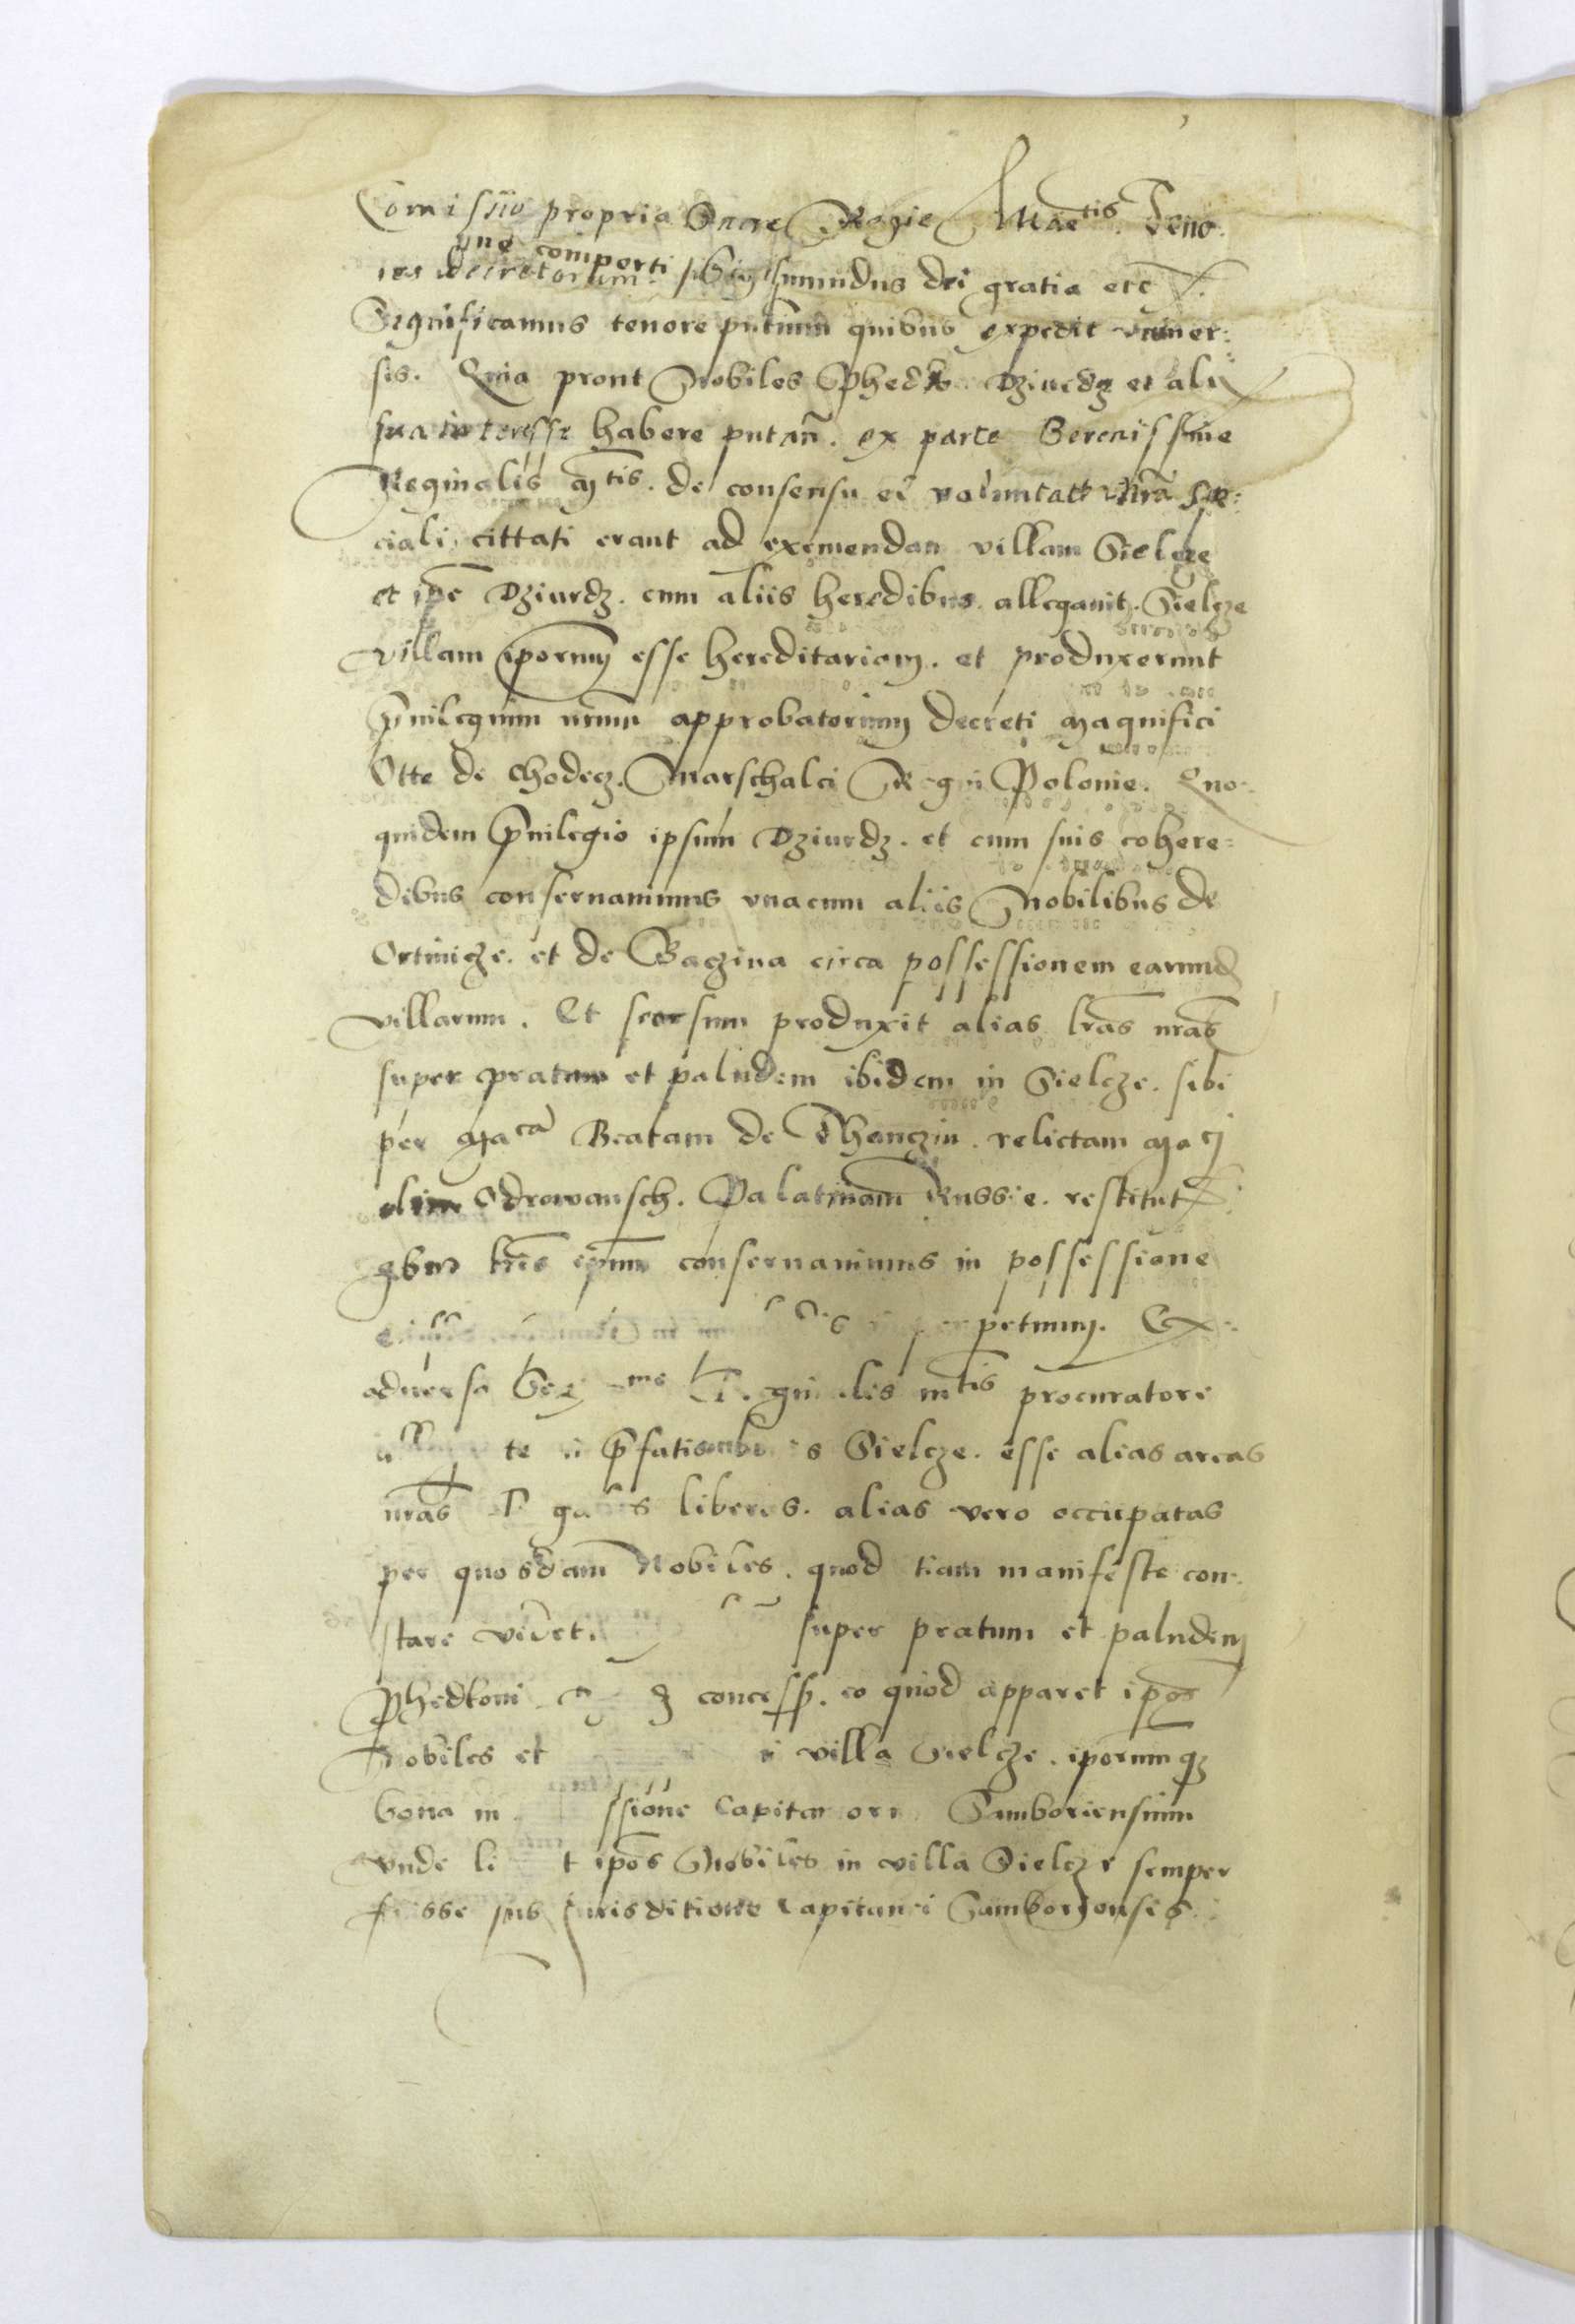 Comissio propria Sacre Regie Mtaetis. Teno-
que comperti
res decretorum. Sigismundus dei gratia etc
Significamus tenore pntium quibus expedit univer:
sis. Quia prout Nobiles Phedko Dziurdz et alii
sua interesse habere putan. ex parte Serenissime
Reginalis Mtis. de consensu et voluntate nra spe:
ciali cittati erant ad eximendam villam Sielcze
et ipe Dziurdz. cum aliis heredibus allegavit. Sielcze
villam iporum esse hereditariam. et produxerunt
privilegium nrum approbatorium decreti Magnifici
Otte de Chodecz. Marschalci Regni Polonie. Quo-
quidem privilegio ipsum Dziurdz. et cum suis cohere=
dibus conservavimus unacum aliis Nobilibus de
Ortinicze. et de Baczina circa possessionem earumd
villarum. Et seorsum produxit alias lras nras
super pratum et paludem ibidem in Sielcze. sibi
per Macam Beatam de Thanczin. relictam Maci
olim Odrowansch. Palatinam Russie. restitut
qbus lris ipum conservavimus in possessione
perpetuum. Ex
adverso Sermme Reginalis mtis procuratore
te prefatis Sielcze. esse alias areas
nras liberas. alias vero occupatas
per quosdam Nobiles. quod tiam manifeste con-
stare videt. super pratum et paludem
Phedkoni concess. eo quod apparet ipos
Nobiles et villa Sielcze. iporumq
bona in ssione Capitaneorum Samboriensium
Unde li t ipos Nobiles in villa Sielcze semper
fuisse sub iurisditione Capitanei Samboriensis.